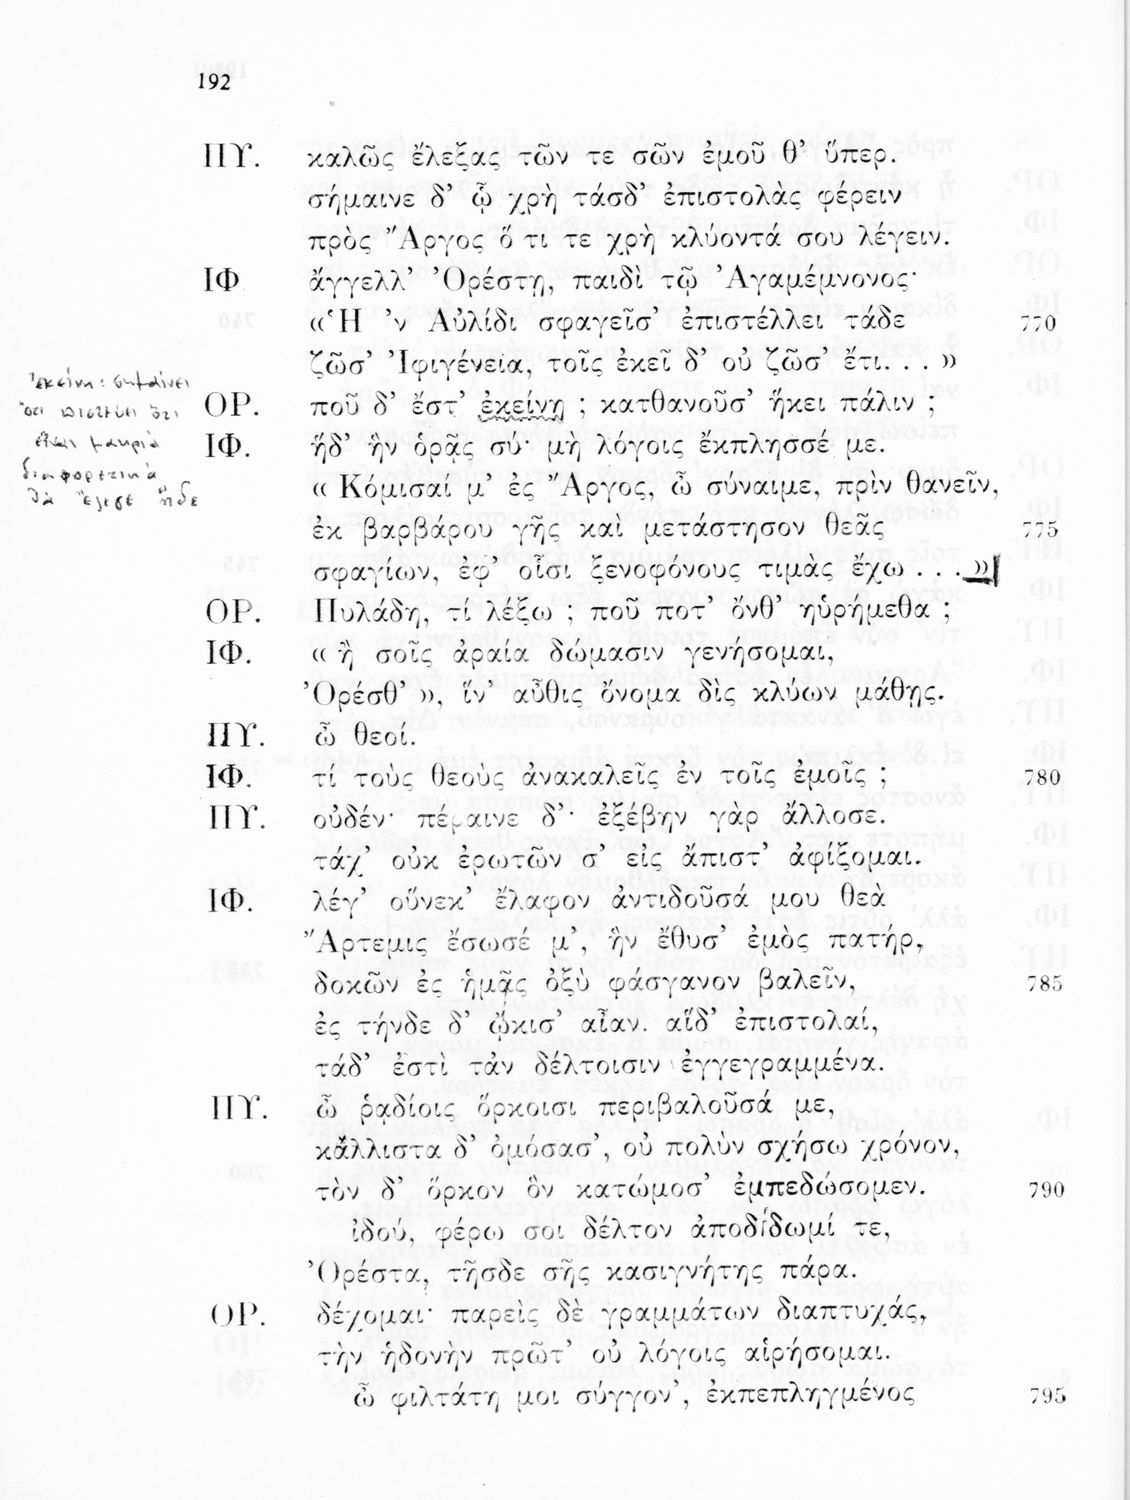 192
ΠΥ. καλῶς ἔλεξας τῶν τε σῶν ἐμοῦ θ’ ὕπερ.
σήμαινε δ’ ᾧ χρὴ τάσδ’ ἐπιστολὰς φέρειν
πρὸς Ἄργος ὅ τι τε χρὴ κλύοντά σου λέγειν.
ΙΦ ἄγγελλ’ Ὀρέστῃ, παιδὶ τῷ Ἀγαμέμνονος·
«Ἡ ’ν Αὐλίδι σφαγεῖσ’ ἐπιστέλλει τάδε 770
ζῶσ’ Ἰφιγένεια, τοῖς ἐκεῖ δ’ οὐ ζῶσ’ ἔτι. . . »
ἐκείνη : σημαίνει
ὅτι πιστεύει ὅτι
εἶναι μακριὰ
διαφορετικὰ
θὰ ἔλεγε ἥδε
ΟΡ. ποῦ δ’ ἔστ’ ἐκείνη ; κατθανοῦσ’ ἥκει πάλιν ;
ΙΦ. ἥδ’ ἣν ὁρᾷς σύ· μὴ λόγοις ἔκπλησσέ με.
« Κόμισαί μ’ ἐς Ἄργος, ὦ σύναιμε, πρὶν θανεῖν,
ἐκ βαρβάρου γῆς καὶ μετάστησον θεᾶς 775
σφαγίων, ἐφ’ οἷσι ξενοφόνους τιμὰς ἔχω . . . »
ΟΡ. Πυλάδη, τί λέξω ; ποῦ ποτ’ ὄνθ’ ηὑρήμεθα ;
ΙΦ. « ἢ σοῖς ἀραία δώμασιν γενήσομαι,
Ὀρέσθ’ », ἵν’ αὖθις ὄνομα δὶς κλύων μάθῃς.
ΠΥ. ὦ θεοί.
ΙΦ. τί τοὺς θεοὺς ἀνακαλεῖς ἐν τοῖς ἐμοῖς ; 780
ΠΥ. οὐδέν· πέραινε δ’· ἐξέβην γὰρ ἄλλοσε.
τάχ’ οὐκ ἐρωτῶν σ’ εἰς ἄπιστ’ ἀφίξομαι.
ΙΦ. λέγ’ οὕνεκ’ ἔλαφον ἀντιδοῦσά μου θεὰ
Ἄρτεμις ἔσωσέ μ’, ἣν ἔθυσ’ ἐμὸς πατήρ,
δοκῶν ἐς ἡμᾶς ὀξὺ φάσγανον βαλεῖν, 785
ἐς τήνδε δ’ ᾤκισ’ αἶαν. αἵδ’ ἐπιστολαί,
τάδ’ ἐστὶ τἀν δέλτοισιν ἐγγεγραμμένα.
ΠΥ. ὦ ῥᾳδίοις ὅρκοισι περιβαλοῦσά με,
κάλλιστα δ’ ὀμόσασ’, οὐ πολὺν σχήσω χρόνον,
τὸν δ’ ὅρκον ὃν κατώμοσ’ ἐμπεδώσομεν. 790
ἰδού, φέρω σοι δέλτον ἀποδίδωμί τε,
Ὀρέστα, τῆσδε σῆς κασιγνήτης πάρα.
ΟΡ. δέχομαι· παρεὶς δὲ γραμμάτων διαπτυχάς,
τὴν ἡδονὴν πρῶτ’ οὐ λόγοις αἱρήσομαι.
ὦ φιλτάτη μοι σύγγον’, ἐκπεπληγμένος 795